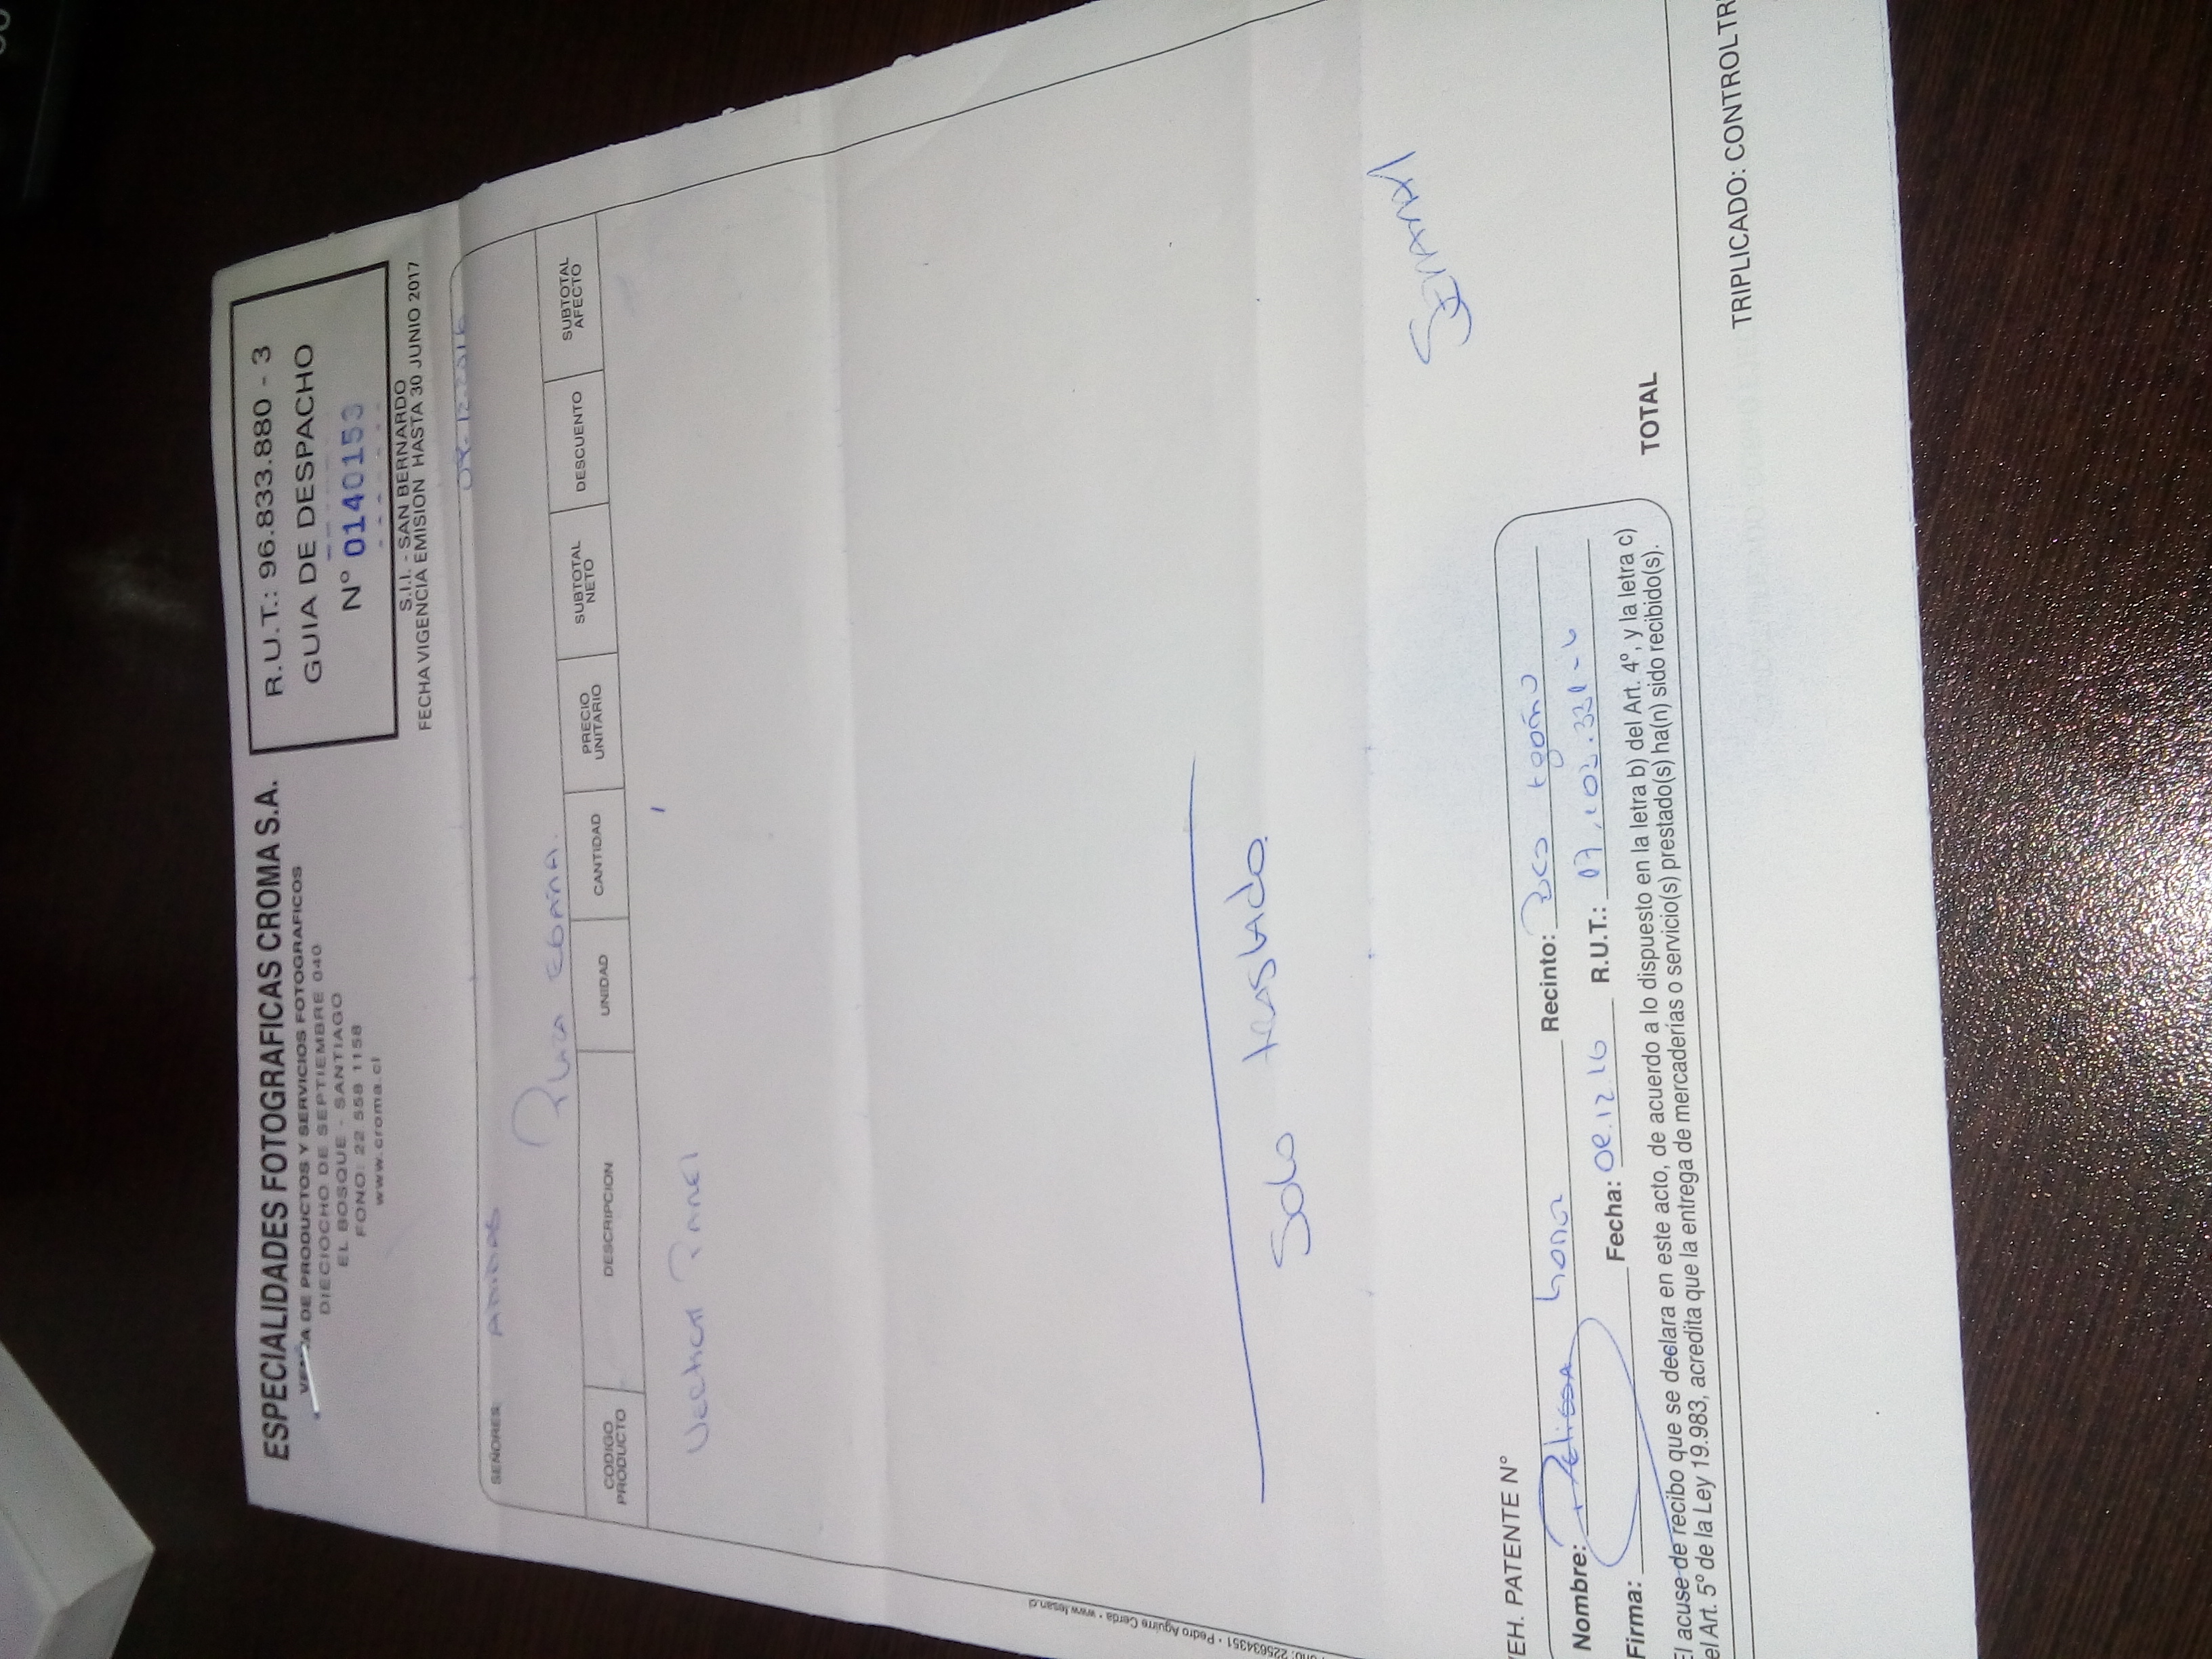 ESPECIALIDADES FOTOGRAFICAS CROMA S.A.
VENTA DE PRODUCTOS Y SERVICIOS FOTOGRAFICOS
DIECIOCHO DE SEPTIEMBRE 040
EL BOSQUE - SANTIAGO
FONO: 22 558 1158
www.croma.cl
R.U.T.: 96.833.880 - 3
GUIA DE DESPACHO
N° 0140153
S.I.I. - SAN BERNARDO
FECHA VIGENCIA EMISION HASTA 30 JUNIO 2017
SEÑORES: ADIDAS
PLAZA EGAÑA.
CODIGO PRODUCTO DESCRIPCION UNIDAD CANTIDAD PRECIO UNITARIO SUBTOTAL NETO DESCUENTO SUBTOTAL AFECTO
Vertical Panel 1
Solo traslado.
Semanal
225634351 • Pedro Aguirre Cerda • www.fesan.cl
VEH. PATENTE N°
Nombre: Recinto:
Firma: Fecha: R.U.T.:
El acuse de recibo que se declara en este acto, de acuerdo a lo dispuesto en la letra b) del Art. 4º, y la letra c)
el Art. 5º de la Ley 19.983, acredita que la entrega de mercaderías o servicio(s) prestado(s) ha(n) sido recibido(s).
TOTAL
TRIPLICADO: CONTROL TR